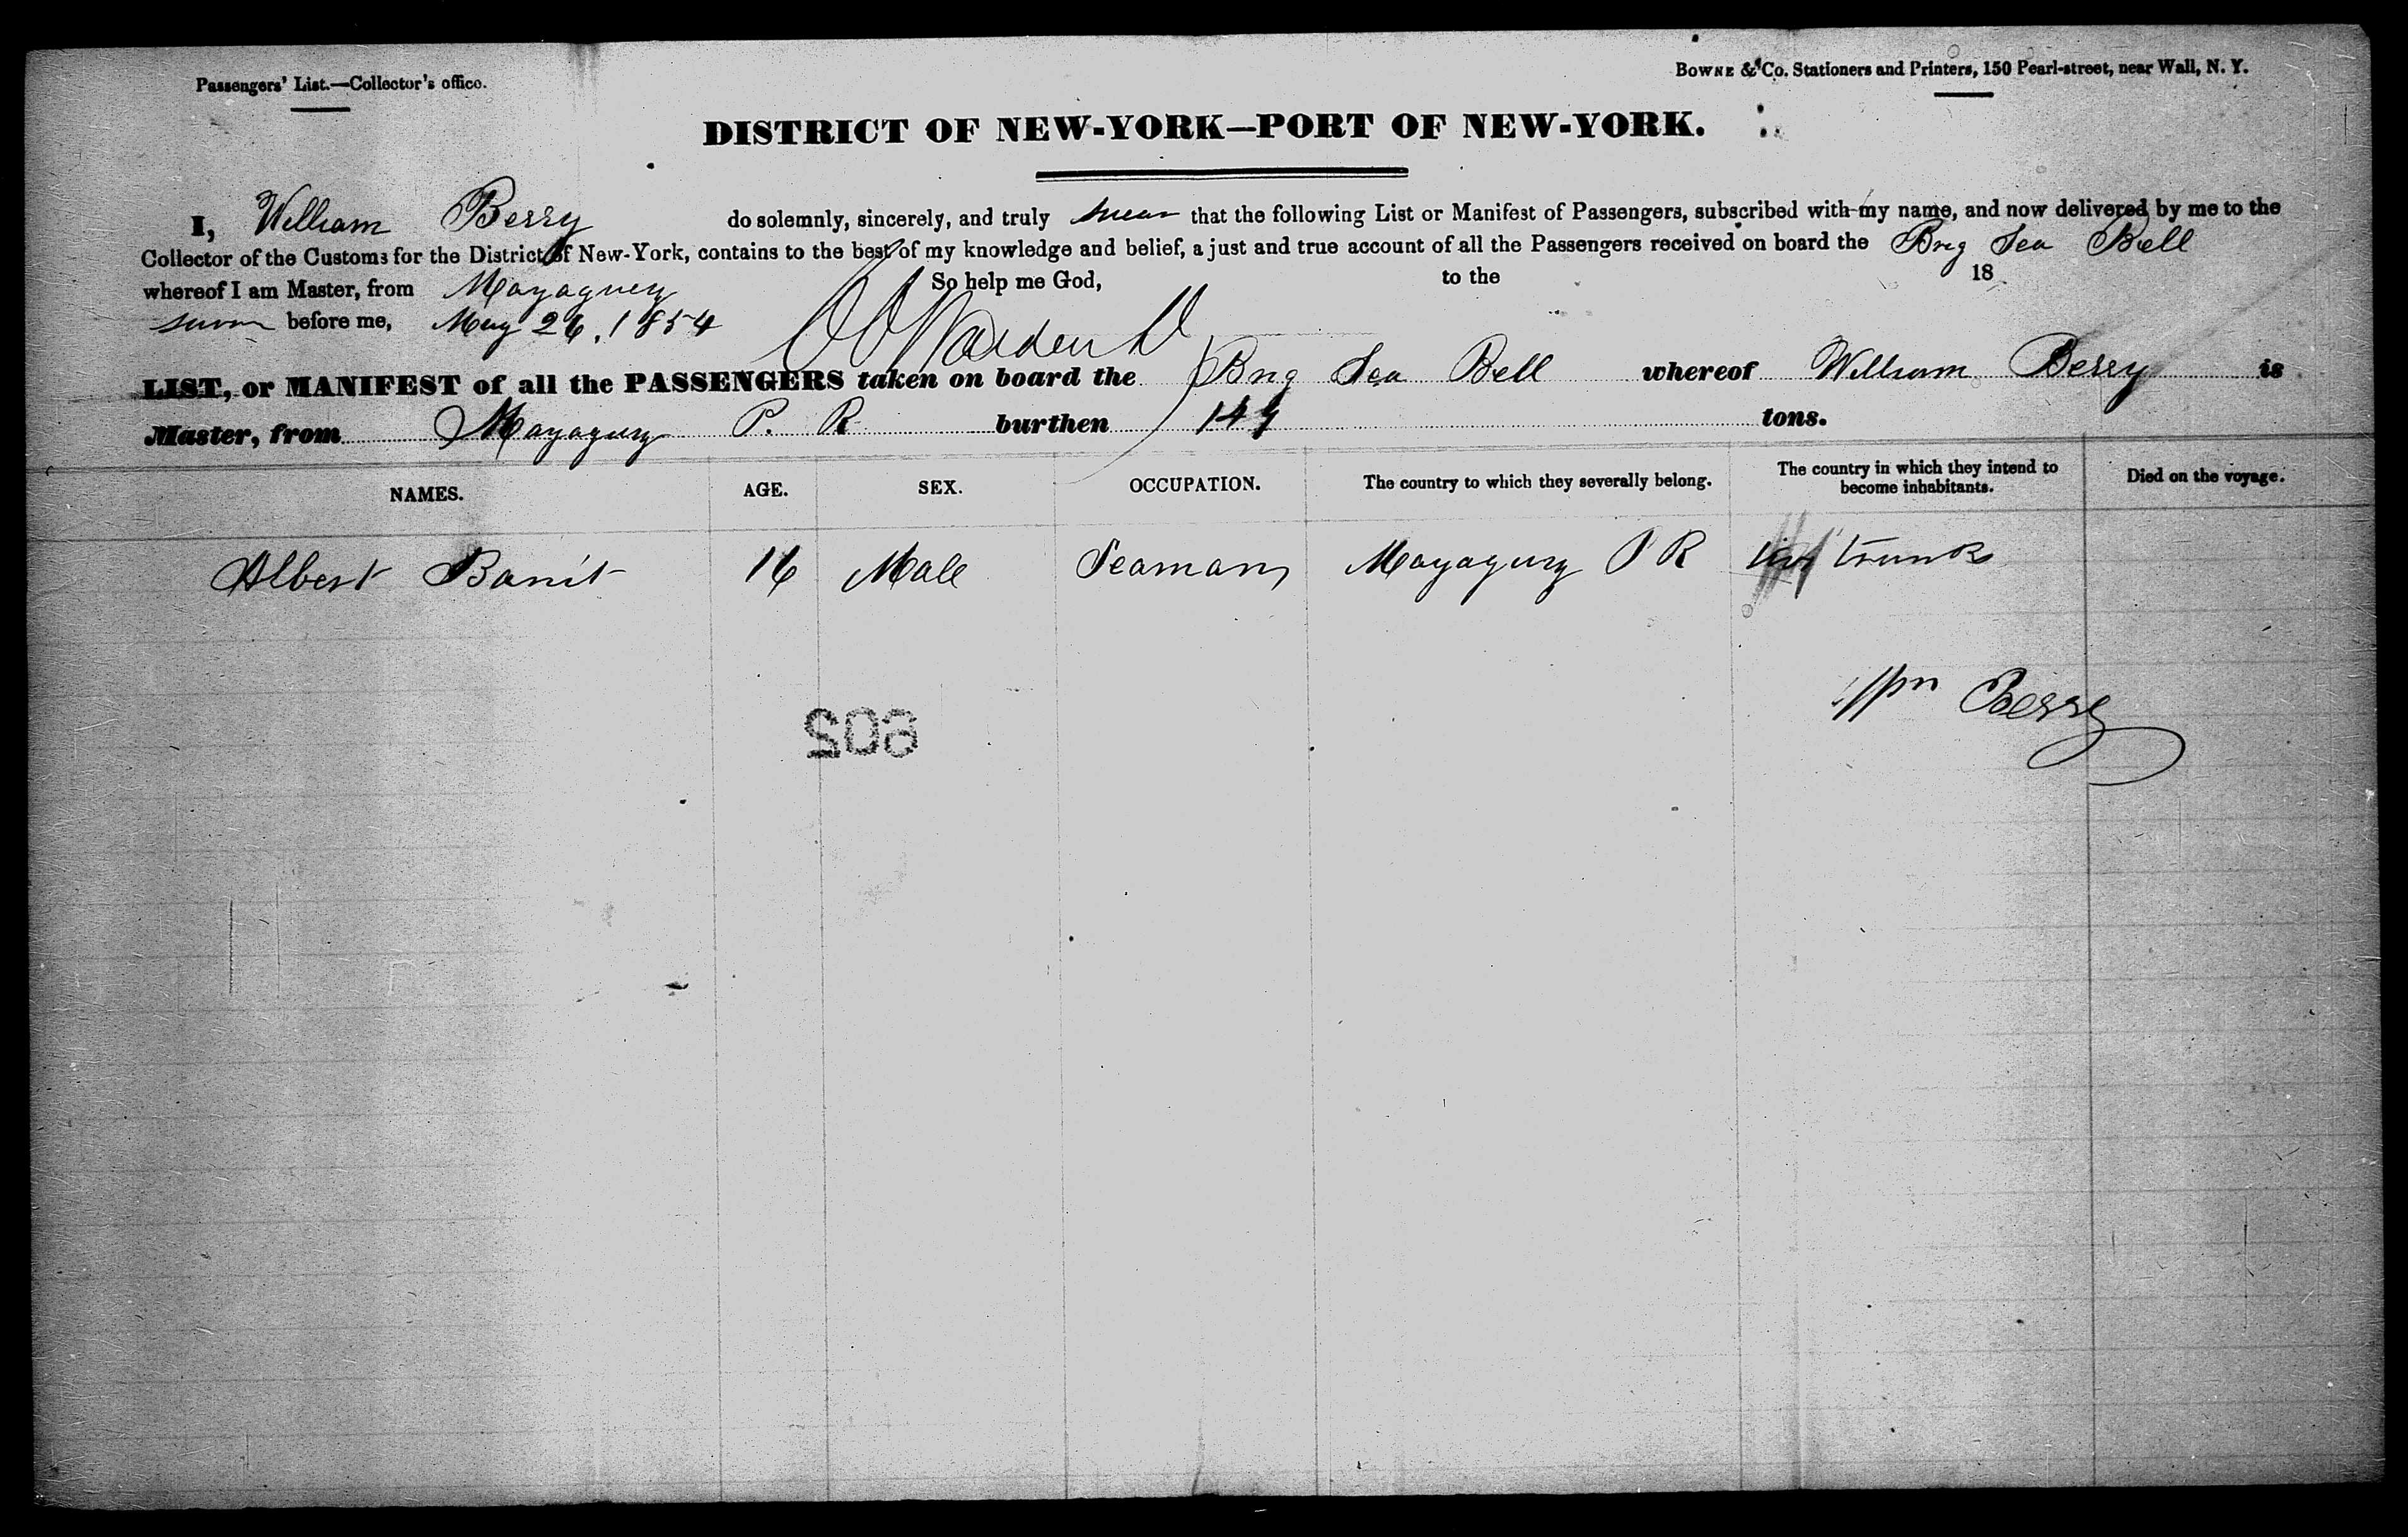 Passengers' List.—Collector's office.
BOWNE & Co. Stationers and Printers, 150 Pearl-street, near Wall, N. Y.
DISTRICT OF NEW-YORK—PORT OF NEW-YORK.
I, William Berry do solemnly, sincerely, and truly swear that the following List or Manifest of Passengers, subscribed with my name, and now delivered by me to the
Collector of the Customs for the District of New-York, contains to the best of my knowledge and belief, a just and true account of all the Passengers received on board the Brig Sea Bell
whereof I am Master, from Mayaguez So help me God, to the 18
Sworn before me, May 26, 1854
LIST, or MANIFEST of all the PASSENGERS taken on board the Brig Sea Bell whereof William Berry is
Master, from Mayaguez P. R burthen 149 tons.
NAMES. AGE. SEX. OCCUPATION. The country to which they severally belong. The country in which they intend to become inhabitants. Died on the voyage.
Albert 16 Male Seaman Mayaguez P R trunks
Wm Berry
602